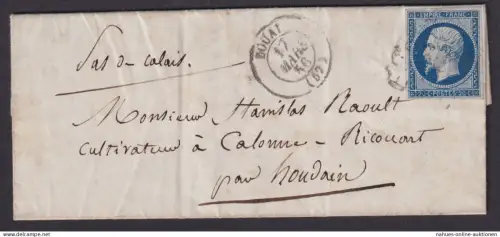 Pas-de-calais.
DOUAI
17
MARS
56
(57)
EMPIRE FRANC.
20 C. POSTES 20 C.
Monsieur Stanislas Raoult
Cultivateur à Calonne-Ricouart
par houdain
www.delcampe.net
nahues-online-auktionen